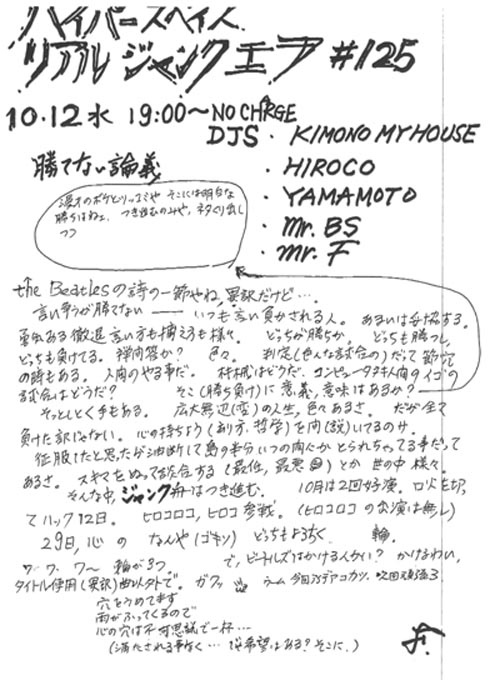 ハイパースペイス
リアル ジャンク エフ #125
10.12水 19:00〜 NO CHRGE
DJS・KIMONO MY HOUSE
・HIROCO
・YAMAMOTO
・Mr. BS
・Mr. F
勝てない論義
漫才のボケとツッコミや そこには明白な
勝ちはねェ、つき進むのみや、ネタくり出し
つつ
the Beatlesの詩の一節やね、異訳だけど…。
言い争うが勝てない ── いつも言い負かされる人。 あるいは妥協する。
勇気ある徹退 言い方も捕え方も様々。 どっちが勝ちか、 どっちも勝つし、
どっちも負けてる。 禅問答か? 色々。 判定(色んな試合の)だって
の時もある。 人間のやる事だ。 機械はどうだ、コンピュータ 人間のイゴの
試合はどうだ? そこ(勝ち負け)に意義、意味はあるか?
そっとしとく手もある。 広大無辺(変)の人生、色々あるさ。 だが全て
負けた訳じゃない。 心の持ちよう(あり方、哲学)を問(説)いてるのサ。
征服したと思ったら油断して島の半分いつの間にか とられちゃってる事だって
あるさ。 スキマをぬって談合する(最低、最悪)とか 世の中 様々。
そんな中、ジャンク舟はつき進む。 10月は2回好演。 口火を切っ
て ハック12日。 ヒロコロコ、ヒロコ参戦。 (ヒロコロコ の公演は無し)
29日、心の なんや(ゴキソ) どっちもよろちく 輪。
ワ・ワ・ワ〜 輪が3つ。 で、ビートルズはかける人かい? かけねわい、
タイトル使用(異訳)曲以外で。 ガクッ うーム 今回
穴をうめてます
雨がふってくるので
心の穴は不可思議で一杯…
(満たされる事なく… 希望はある? そこに.)